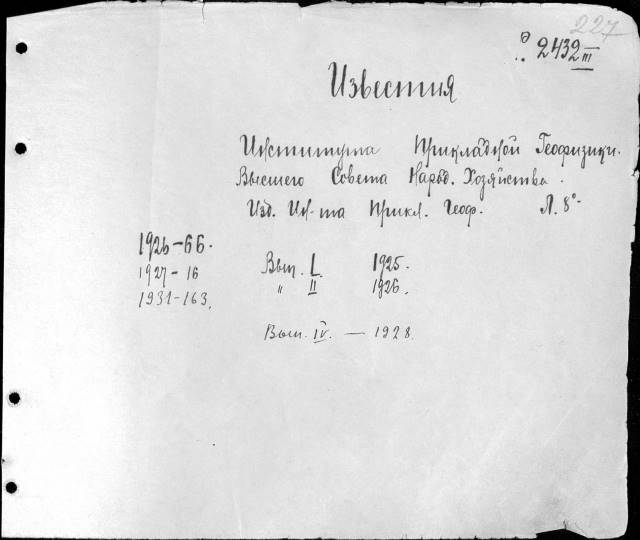 227
2432 III
Известия
Института Прикладной Геофизики.
Высшего Совета Народ. Хозяйства.
Изд. Ин-та Прикл. Геоф. Л. 8°
1926-66.
1927-16 Вып. I. 1925.
1931-163. " II 1926.
Вып. IV. — 1928.